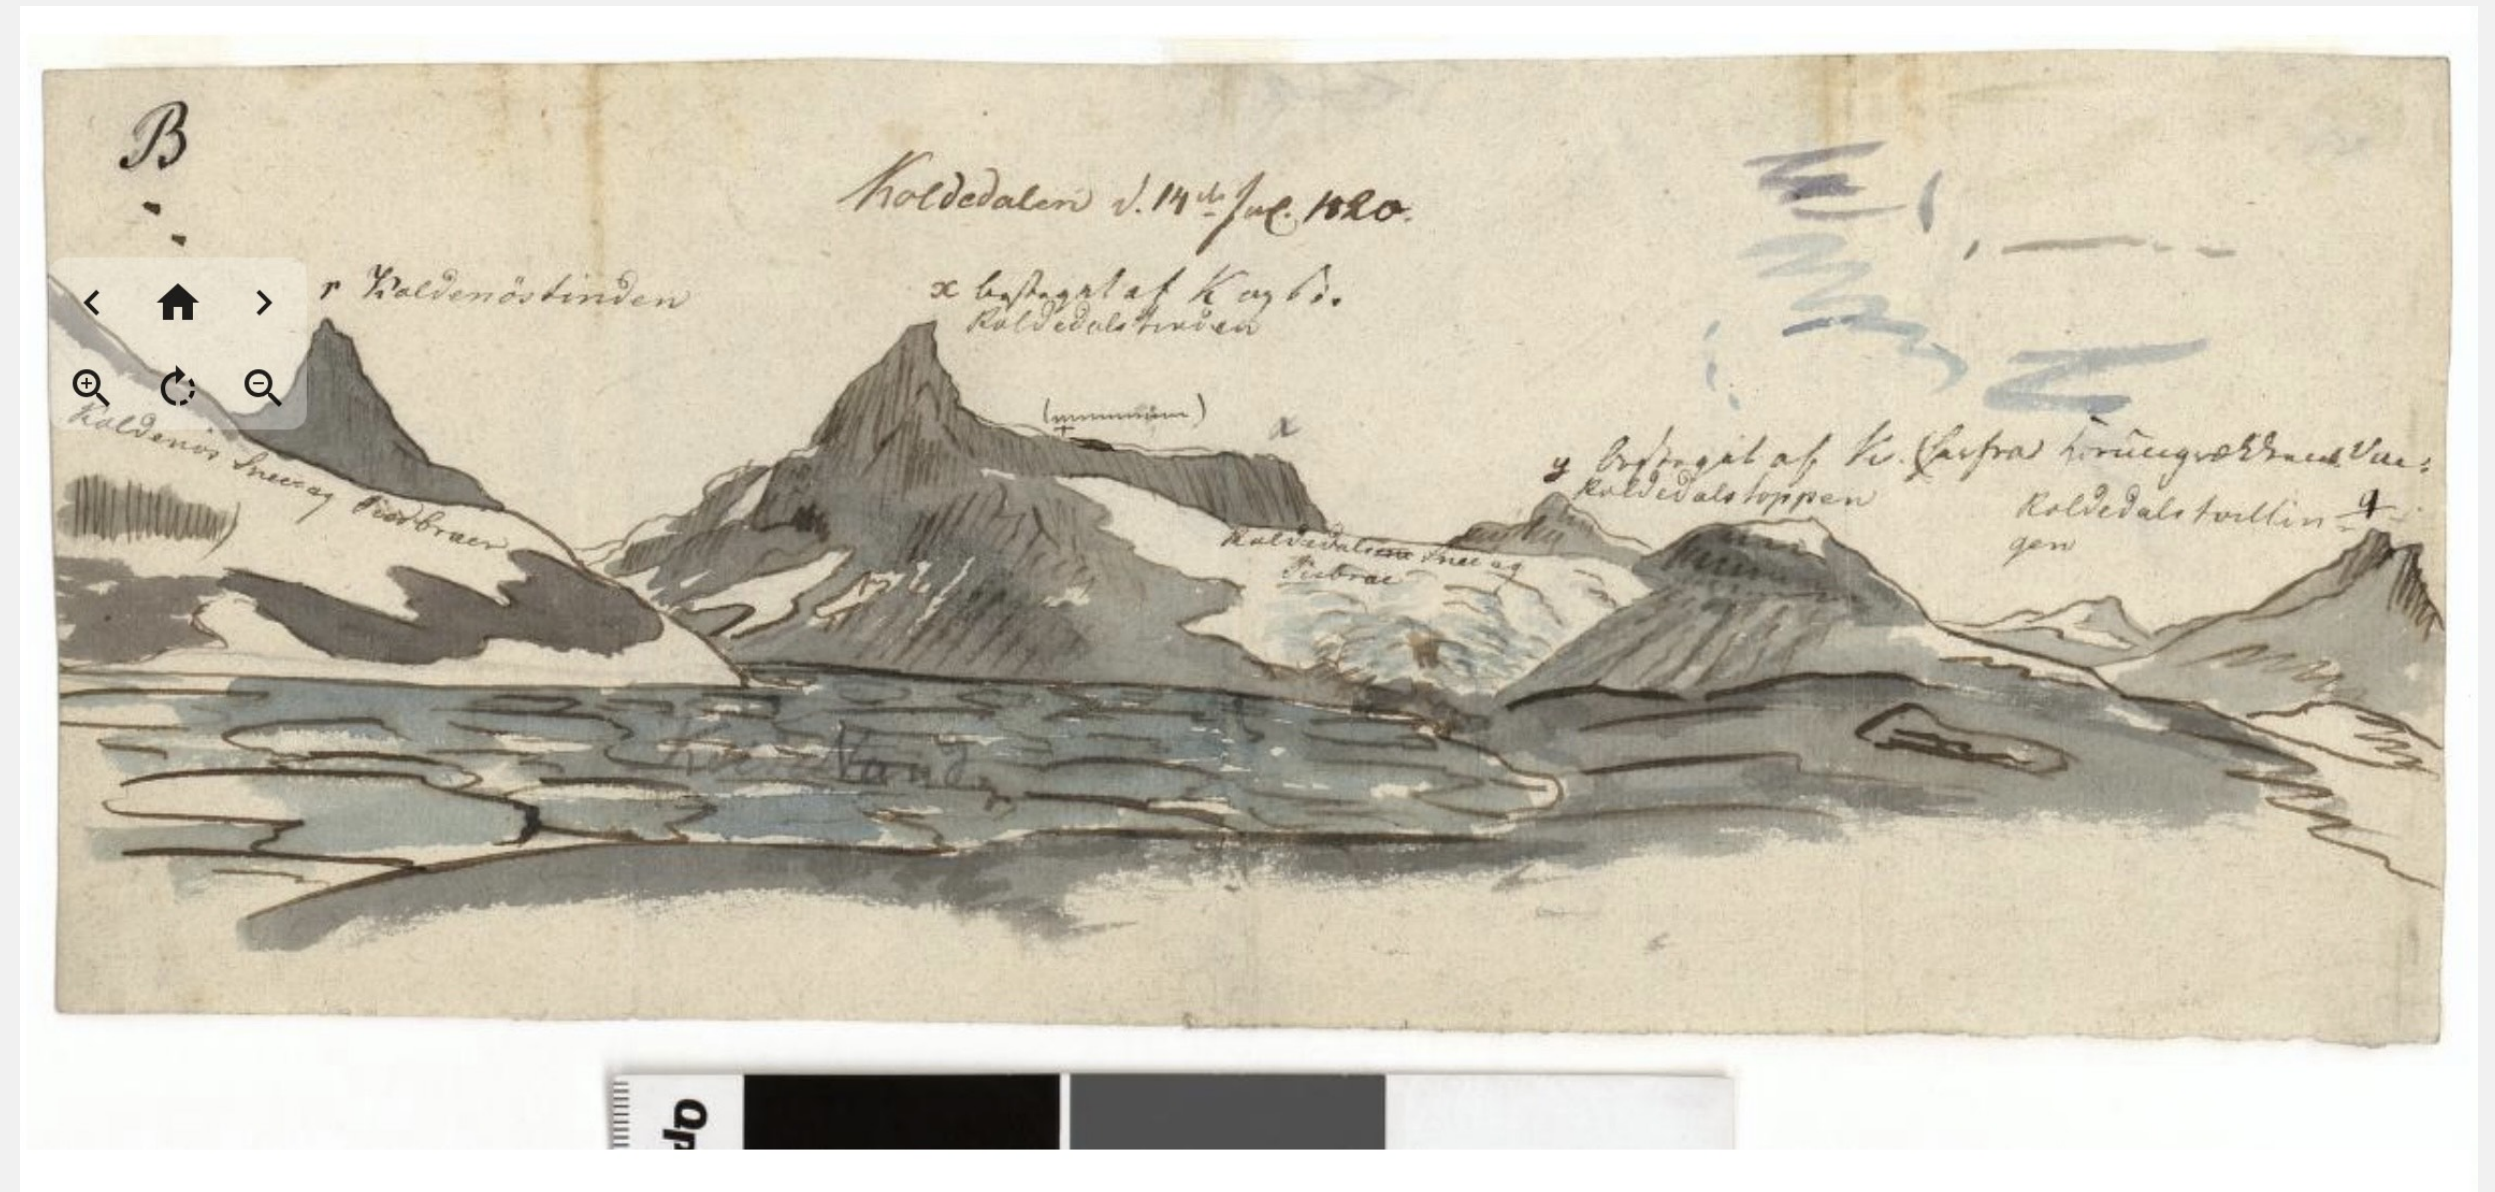 B
Koldedalen d. 14de Jul. 1820.
r Koldenöstinden
x besteget af K og b.
Koldedalstinden
Koldenös Snee og Iisbraer
y besteget af K. (herfra
Koldedalstoppen
Koldedalstvillin=
gen
Koldedals Snee og
Iisbrae
Vand
op